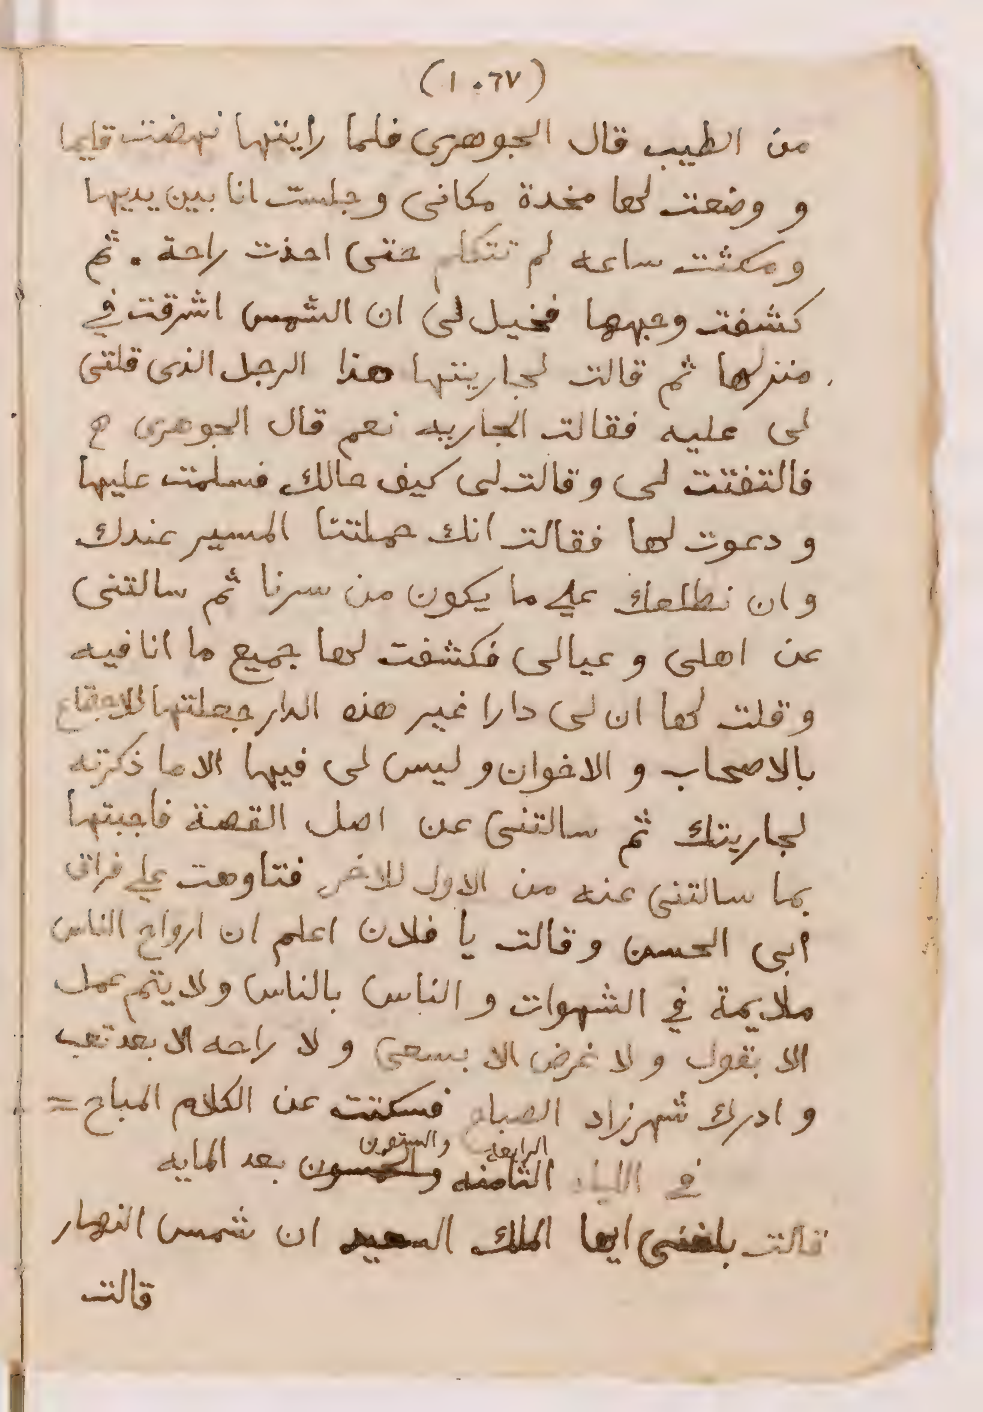 (١٠٦٧)
من الطيب قال الجوهرى فلما رايتها نهضت قايما
و وضعت لها مخدة مكانى وجلست انا بين يديها
ومكثت ساعه لم تتكلم حتى اخذت راحة . ثم
كشفت وجهها فخيل لى ان الشمس اشرقت في
منزلها ثم قالت لجاريتها هذا الرجل الذى قلتى
لى عليه فقالت الجاريه نعم قال الجوهرى
فالتفتت لى وقالت لى كيف حالك فسلمت عليها
و دعوت لها فقالت انك حملتنا المسير عندك
و ان نطلعك على ما يكون من سرنا ثم سالتنى
عن اهلى و عيالى فكشفت لها جميع ما انا فيه
و قلت لها ان لى دارا غير هذه الدار جعلتها للاجتماع
بالاصحاب و الاخوان و ليس لى فيها الا ما ذكرته
لجاريتك ثم سالتنى عن اصل القصة فاجبتها
بما سالتنى عنه من الاول للاخر فتاوهت على فراق
أبى الحسن وقالت يا فلان اعلم ان ارواح الناس
ملايمة في الشهوات و الناس بالناس ولا يتم عمل
الا بقول و لا غرض الا بسعى و لا راحه الا بعد تعب
و ادرك شهرزاد الصباح فسكتت عن الكلام المباح =
الرابعه والستون
في الليله الثامنه والخمسون بعد المايه
قالت بلغنى ايها الملك السعيد ان شمس النهار
قالت